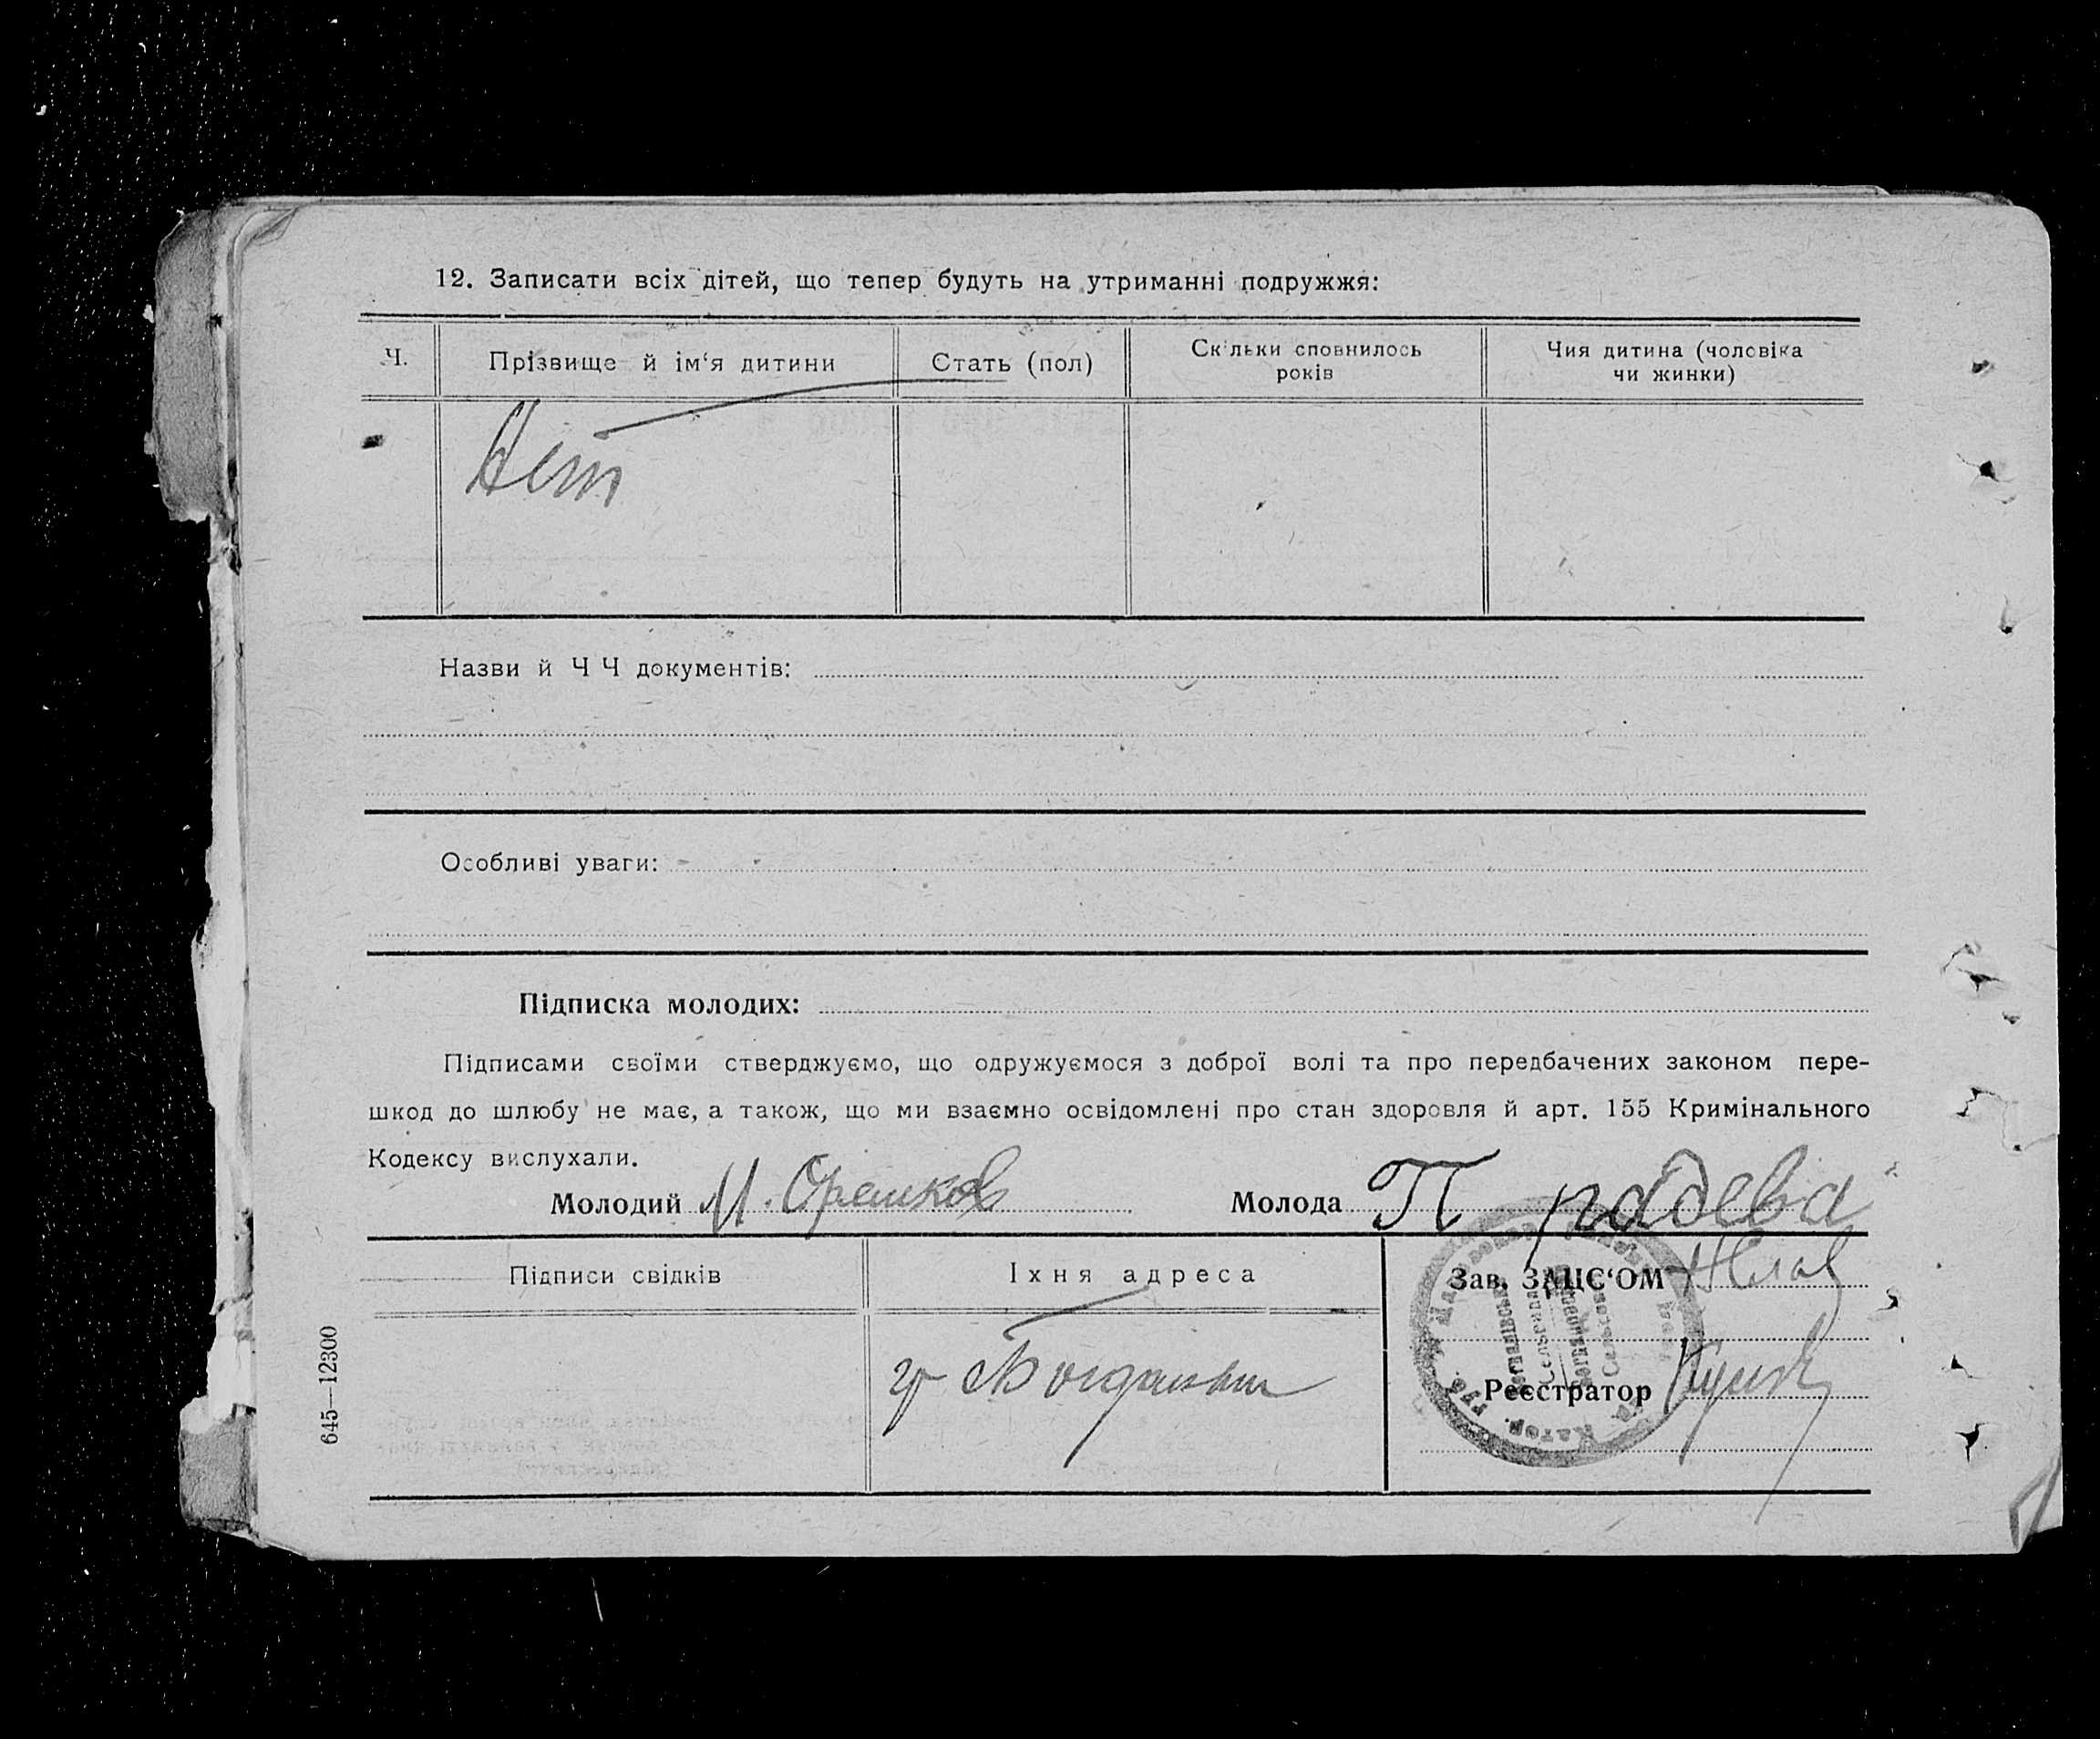 12. Записати всіх дітей, що тепер будуть на утриманні подружжя:
Ч.
Прізвище й ім‘я дитини
Стать (пол)
Скільки сповнилось років
Чия дитина (чоловіка чи жинки)
Нет
Назви й Ч Ч документів:
Особливі уваги:
Підписка молодих:
Підписами своїми стверджуємо, що одружуємося з доброї волі та про передбачених законом пере-
шкод до шлюбу не має, а також, що ми взаємно освідомлені про стан здоровля й арт. 155 Кримінального
Кодексу вислухали.
Молодий И. Орешков
Молода П радева
Підписи свідків
Їхня адреса
Зав. ЗАЦС‘ОМ
Реєстратор
645—12300